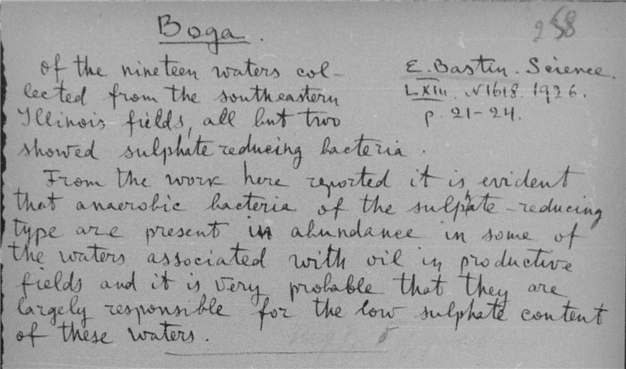 Boga.
258
E. Bastin. Science.
LXIII. N1618. 1926.
p. 21-24.
of the nineteen waters col-
lected from the southeastern
Illinois fields, all but two
showed sulphate reducing bacteria.
From the work here reported it is evident
that anaerobic bacteria of the sulphate-reducing
type are present in abundance in some of
the waters associated with oil in productive
fields and it is very probable that they are
largely responsible for the low sulphate content
of these waters.